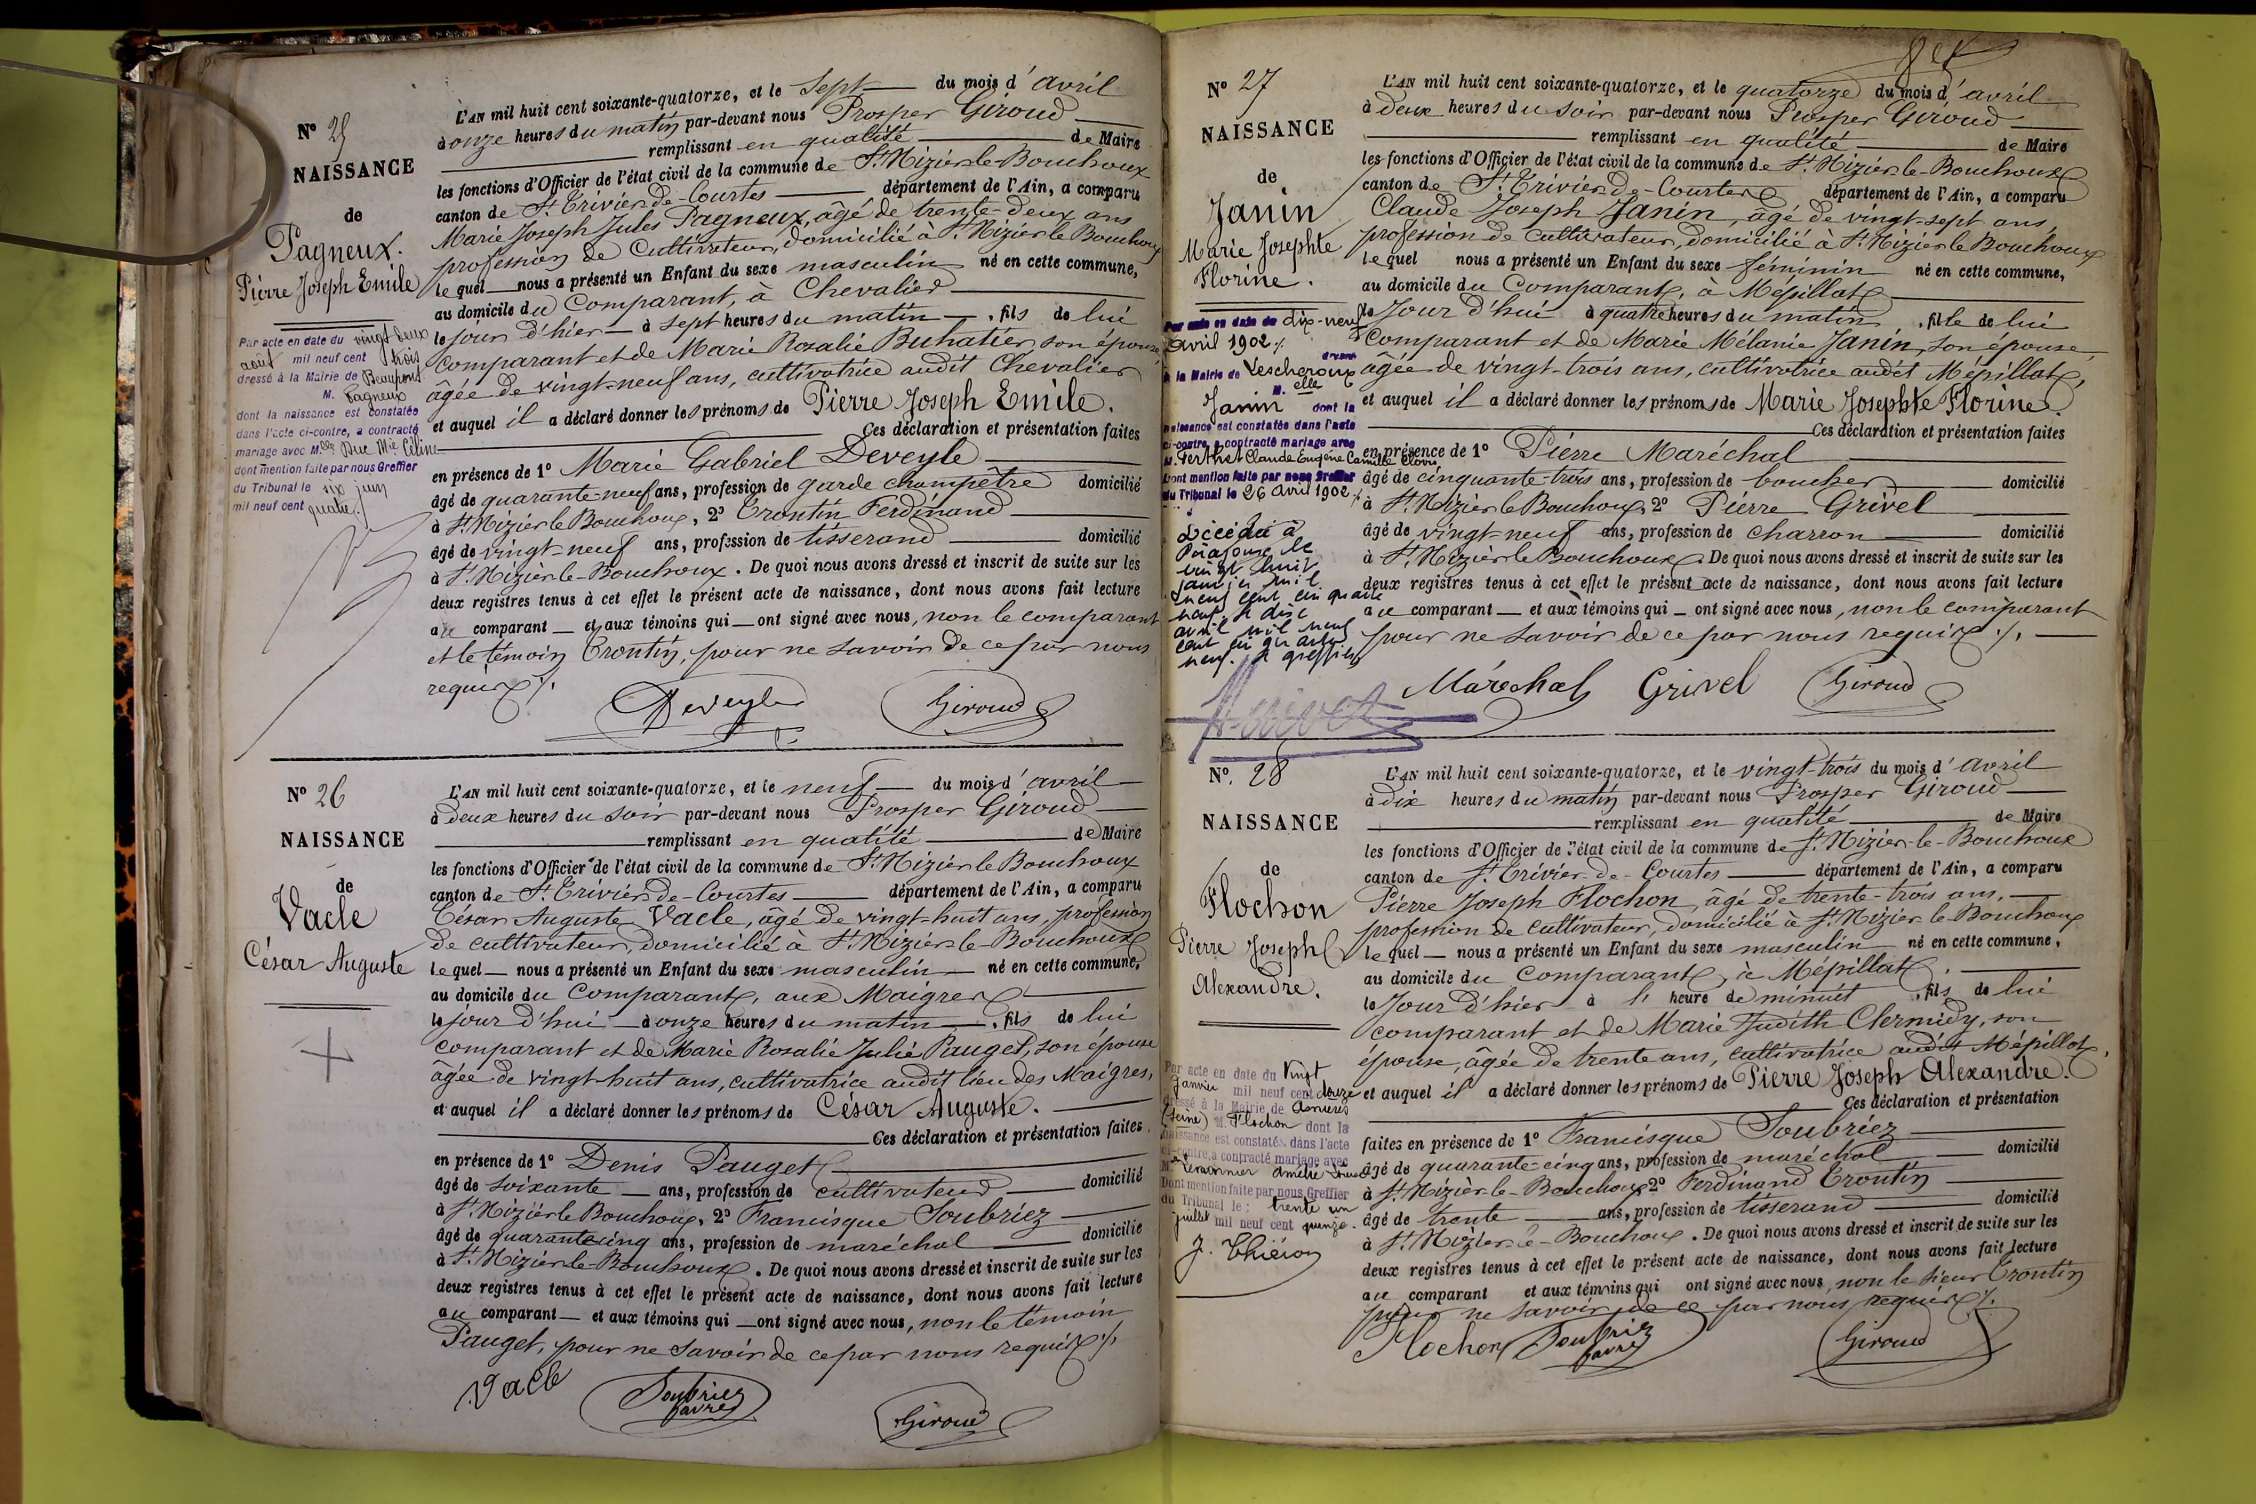 N° 25
NAISSANCE
de
Pagneux.
Pierre Joseph Emile
Par acte en date du vingt deux
août mil neuf cent trois
dressé à la Mairie de Beaupont
M. Pagneux
dont la naissance est constatée
dans l'acte ci-contre, a contracté
mariage avec Mlle Duc Mie Céline
dont mention faite par nous Greffier
du Tribunal le six juin
mil neuf cent quatre./
L'AN mil huit cent soixante-quatorze, et le Sept du mois d'avril
à onze heures du matin par-devant nous Prosper Giroud
remplissant en qualité de Maire
les fonctions d'Officier de l'état civil de la commune de St Nizier le Bouchoux
canton de St Trivier de-Courtes département de l'Ain, a comparu
Marie Joseph Jules Pagneux, âgé de trente-deux ans
profession de Cultivateur, domicilié à St Nizier le Bouchoux
lequel nous a présenté un Enfant du sexe masculin né en cette commune,
au domicile du Comparant, à Chevalier
le jour d'hier à sept heures du matin, fils de lui
Comparant et de Marie Rosalie Buhatier, son épouse,
âgée de vingt-neuf ans, cultivatrice audit Chevalier
et auquel il a déclaré donner les prénoms de Pierre Joseph Emile.
Ces déclaration et présentation faites
en présence de 1° Marie Gabriel Deveyle
âgé de quarante-neuf ans, profession de garde champêtre domicilié
à St Nizier le Bouchoux, 2° Trontin Ferdinand
âgé de vingt-neuf ans, profession de tisserand domicilié
à St Nizier-le-Bouchoux. De quoi nous avons dressé et inscrit de suite sur les
deux registres tenus à cet effet le présent acte de naissance, dont nous avons fait lecture
au comparant et aux témoins qui ont signé avec nous, non le comparant
et le témoin Trontin, pour ne savoir de ce par nous
requis ./.
Deveyle Giroud
N° 26
NAISSANCE
de
Vacle
César Auguste
L'AN mil huit cent soixante-quatorze, et le neuf du mois d'avril
à deux heures du soir par-devant nous Prosper Giroud
remplissant en qualité de Maire
les fonctions d'Officier de l'état civil de la commune de St Nizier le Bouchoux
canton de St Trivier de-Courtes département de l'Ain, a comparu
César Auguste Vacle, âgé de vingt-huit ans, profession
de cultivateur, domicilié à St Nizier le Bouchoux
lequel nous a présenté un Enfant du sexe masculin né en cette commune,
au domicile du Comparant, aux Maigres
le jour d'hui à onze heures du matin, fils de lui
comparant et de Marie Rosalie Julie Pauget, son épouse
âgée de vingt-huit ans, cultivatrice audit lieu des Maigres,
et auquel il a déclaré donner les prénoms de César Auguste.
Ces déclaration et présentation faites
en présence de 1° Denis Pauget
âgé de soixante ans, profession de cultivateur domicilié
à St Nizier le Bouchoux, 2° Francisque Soubriez
âgé de quarante cinq ans, profession de maréchal domicilié
à St Nizier le Bouchoux. De quoi nous avons dressé et inscrit de suite sur les
deux registres tenus à cet effet le présent acte de naissance, dont nous avons fait lecture
au comparant et aux témoins qui ont signé avec nous, non le témoin
Pauget, pour ne savoir de ce par nous requis ./.
Vacle Soubriez favre Giroud
N° 27
NAISSANCE
de
Janin
Marie Josephte
Florine.
Par acte en date du dix-neuf
avril 1902 ./.
à la Mairie de Lescheroux
Melle
Janin dont la
naissance est constatée dans l'acte
ci-contre, a contracté mariage avec
M. Ferthet Claude Eugène Camille Clovis
Dont mention faite par nous Greffier
du Tribunal le 26 avril 1902 ./.
Décédée à
le
vingt huit
janvier mil
neuf cent cinquante
neuf. Le dix
avril mil neuf
cent cinquante
neuf. Le greffier
L'AN mil huit cent soixante-quatorze, et le quatorze du mois d'avril
à deux heures du soir par-devant nous Prosper Giroud
remplissant en qualité de Maire
les fonctions d'Officier de l'état civil de la commune de St Nizier-le-Bouchoux
canton de St Trivier-de-Courtes département de l'Ain, a comparu
Claude Joseph Janin, âgé de vingt-sept ans,
profession de cultivateur, domicilié à St Nizier le Bouchoux
lequel nous a présenté un Enfant du sexe féminin né en cette commune,
au domicile du Comparant, à Mépillat
le Jour d'hui à quatre heures du matin, fille de lui
Comparant et de Marie Mélanie Janin, son épouse,
âgée de vingt-trois ans, cultivatrice audit Mépillat,
et auquel il a déclaré donner les prénoms de Marie Josephte Florine.
Ces déclaration et présentation faites
en présence de 1° Pierre Maréchal
âgé de cinquante-trois ans, profession de boucher domicilié
à St Nizier le Bouchoux 2° Pierre Grivel
âgé de vingt-neuf ans, profession de charron domicilié
à St Nizier le Bouchoux. De quoi nous avons dressé et inscrit de suite sur les
deux registres tenus à cet effet le présent acte de naissance, dont nous avons fait lecture
au comparant et aux témoins qui ont signé avec nous, non le comparant
pour ne savoir de ce par nous requis ./.
Maréchal Grivel Giroud
N°. 28
NAISSANCE
de
Flochon
Pierre Joseph
Alexandre.
Par acte en date du Vingt
Janvier mil neuf cent douze
dressé à la Mairie de Asnières
(Seine) M. Flochon dont la
naissance est constatée dans l'acte
ci-contre, a contracté mariage avec
Melle Amélie
Dont mention faite par nous Greffier
du Tribunal le: trente un
juillet mil neuf cent quinze.
J. Thiérion
L'AN mil huit cent soixante-quatorze, et le vingt-trois du mois d'avril
à dix heures du matin par-devant nous Prosper Giroud
remplissant en qualité de Maire
les fonctions d'Officier de l'état civil de la commune de St Nizier-le-Bouchoux
canton de St Trivier-de-Courtes département de l'Ain, a comparu
Pierre Joseph Flochon, âgé de trente-trois ans,
profession de cultivateur, domicilié à St Nizier le Bouchoux
lequel nous a présenté un Enfant du sexe masculin né en cette commune,
au domicile du Comparant, à Mépillat.
le Jour d'hier à l'heure de minuit, fils de lui
comparant et de Marie Judith Clermidy, son
épouse, âgée de trente ans, cultivatrice audit Mépillat,
et auquel il a déclaré donner les prénoms de Pierre Joseph Alexandre.
Ces déclaration et présentation
faites en présence de 1° Francisque Soubriez
âgé de quarante-cinq ans, profession de maréchal domicilié
à St Nizier-le-Bouchoux 2° Ferdinand Trontin
âgé de trente ans, profession de tisserand domicilié
à St Nizier-le-Bouchoux. De quoi nous avons dressé et inscrit de suite sur les
deux registres tenus à cet effet le présent acte de naissance, dont nous avons fait lecture
au comparant et aux témoins qui ont signé avec nous, non le sieur Trontin
pour ne savoir de ce par nous requis ./.
Flochon Soubriez favre Giroud